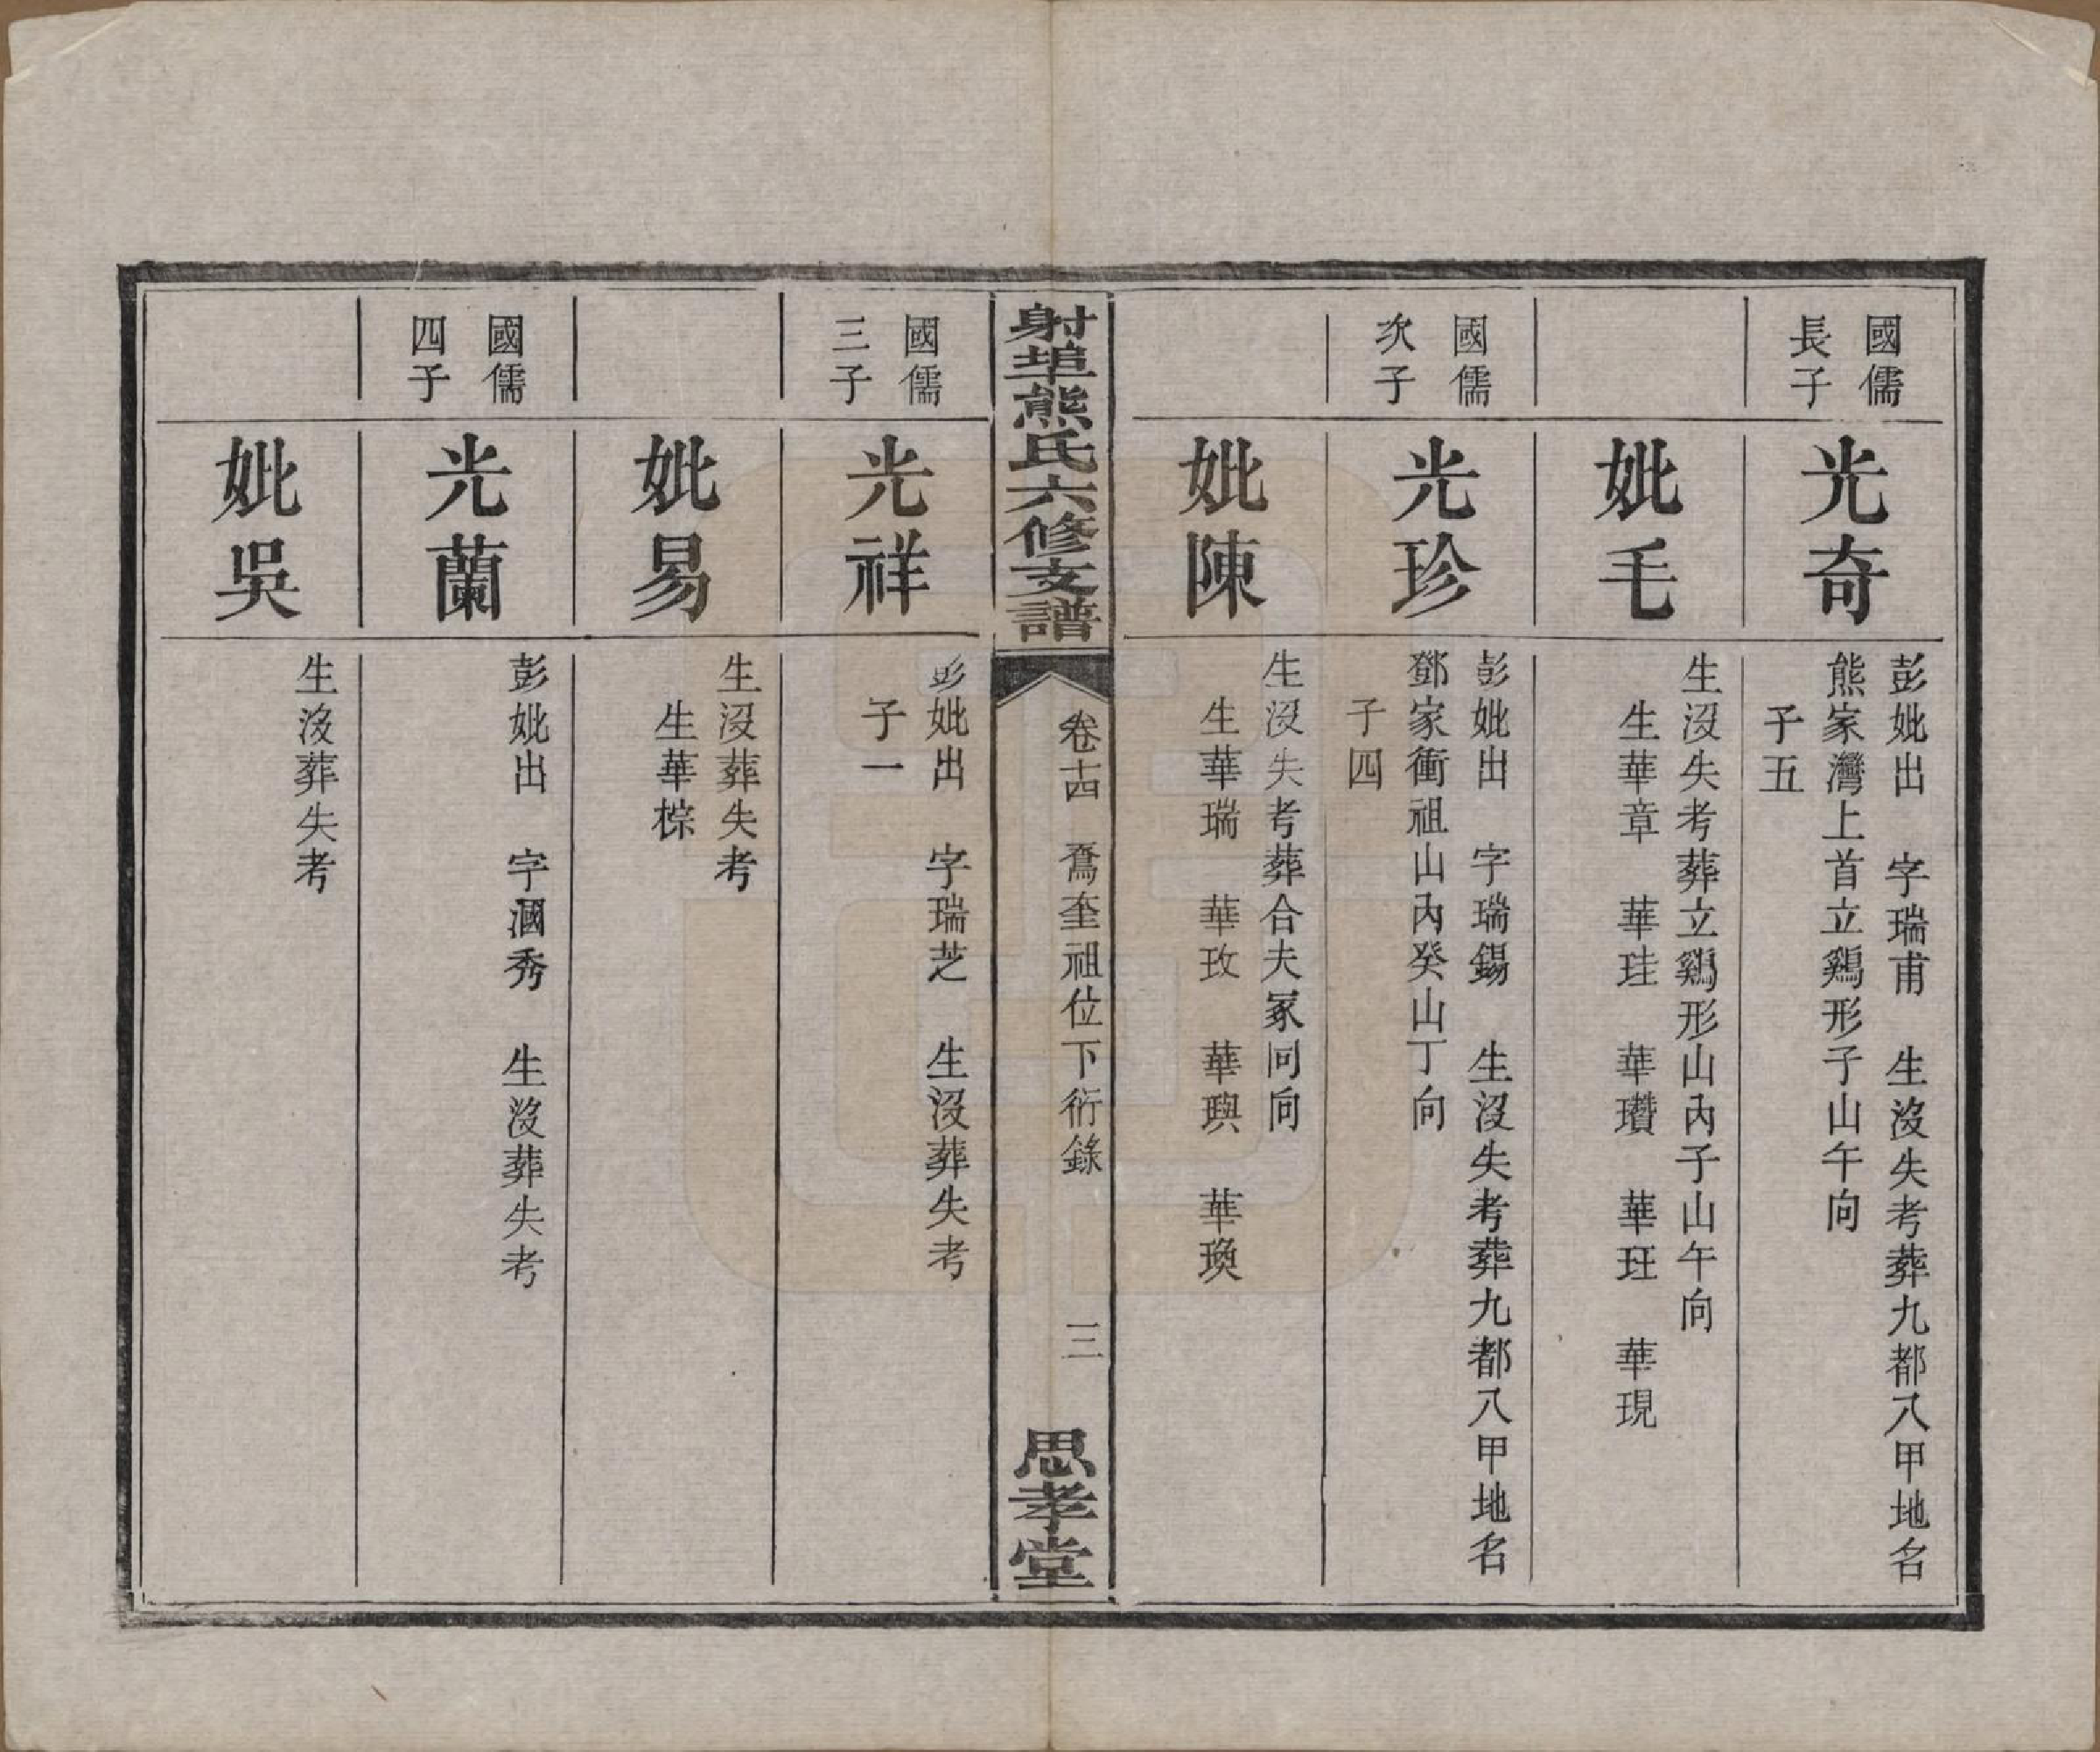 國儒
長子
光奇
彭妣出　字瑞甫　生沒失考葬九都八甲地名
熊家灣上首立鷄形子山午向
子五
妣毛
生沒失考葬立鷄形山內子山午向
生華章　華珪　華瓚　華玨　華現
國儒
次子
光珍
彭妣出　字瑞錫　生沒失考葬九都八甲地名
鄧家衝祖山內癸山丁向
子四
妣陳
生沒失考葬合夫冢同向
生華瑞　華玫　華璵　華瑍
射埠熊氏六修支譜
卷十四　奎祖位下衍錄　三
思孝堂
國儒
三子
光祥
彭妣出　字瑞芝　生沒葬失考
子一
妣易
生沒葬失考
生華棕
國儒
四子
光蘭
彭妣出　字漍秀　生沒葬失考
妣吳
生沒葬失考